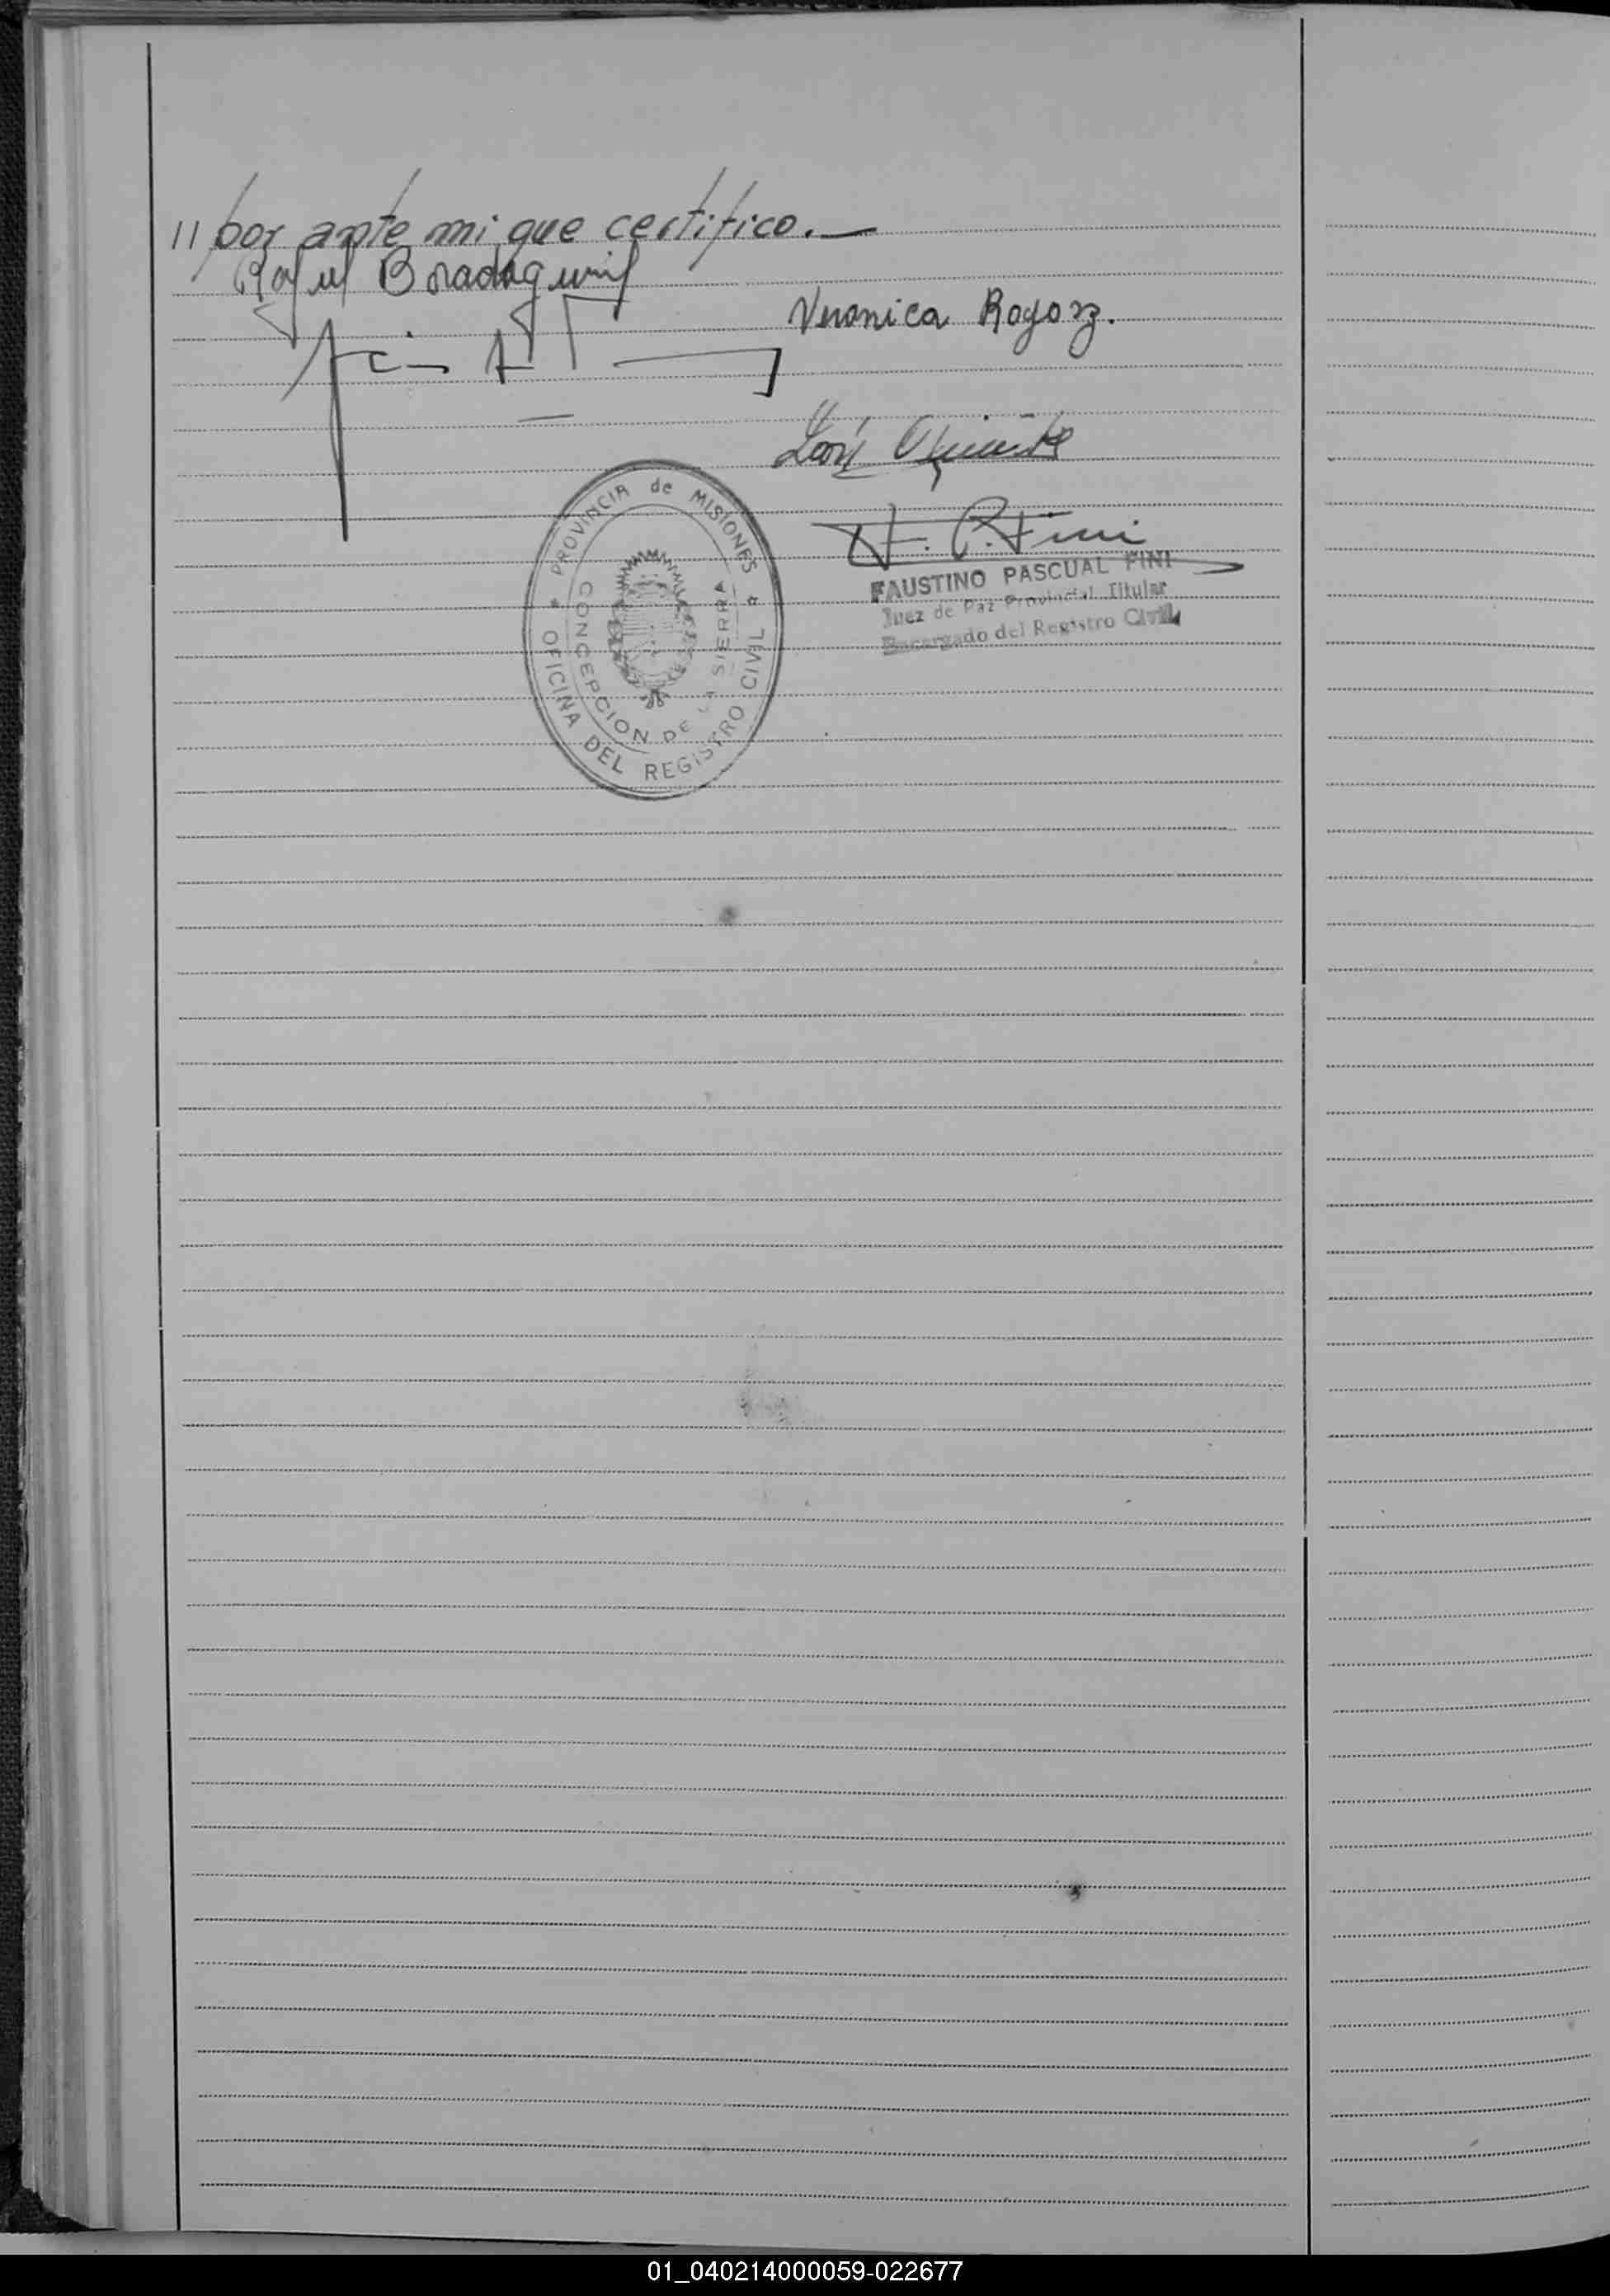 // por ante mi que certifico.—
Rafael
Veronica Rogorz.
F. P. Fini
FAUSTINO PASCUAL FINI
Juez de Paz Provincial Titular
Encargado del Registro Civil
PROVINCIA de MISIONES
OFICINA DEL REGISTRO CIVIL
CONCEPCION DE LA SIERRA
01_040214000059-022677